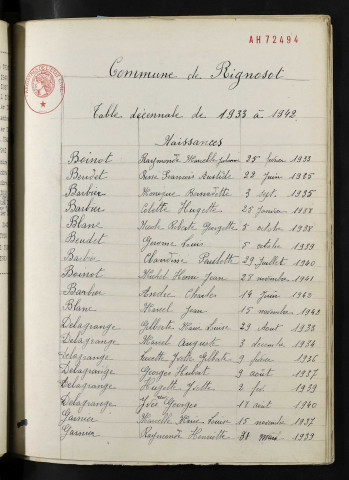 AH 72494
Commune de Rignosot
Table décennale de 1933 à 1942
Naissances
Boinot Raymonde Marcelle 25 février 1933
Beudet Francis Aristide 22 juin 1935
Barbier Bernadette 3 sept. 1935
Barbier Colette Huguette 25 janvier 1938
Blanc Roberte Georgette 5 octobre 1938
Beudet Gérome Louis 5 octobre 1939
Barbier Claudine Paulette 29 juillet 1940
Boinot Michel Henri Jean 27 novembre 1941
Barbier André Charles 14 juin 1940
Blanc Marcel Jean 15 novembre 1942
Delagrange Gilberte Louise 29 août 1933
Delagrange Marcel Auguste 3 décembre 1934
Delagrange Lucette Gilberte 9 février 1936
Delagrange Georges Hubert 9 août 1937
Delagrange Huguette 2 fév. 1939
Delagrange Yves Georges 18 août 1940
Garnier Marcelle Marie 15 novembre 1937
Garnier Raymonde Henriette 31 mars 1939